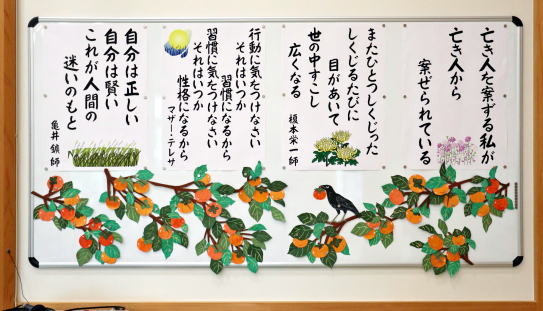 亡き人を案ずる私が
亡き人から
案ぜられている
またひとつしくじった
しくじるたびに
目があいて
世の中すこし
広くなる
榎本栄一師
行動に気をつけなさい
それはいつか
習慣になるから
習慣に気をつけなさい
それはいつか
性格になるから
マザー・テレサ
自分は正しい
自分は賢い
これが人間の
迷いのもと
亀井鑛師